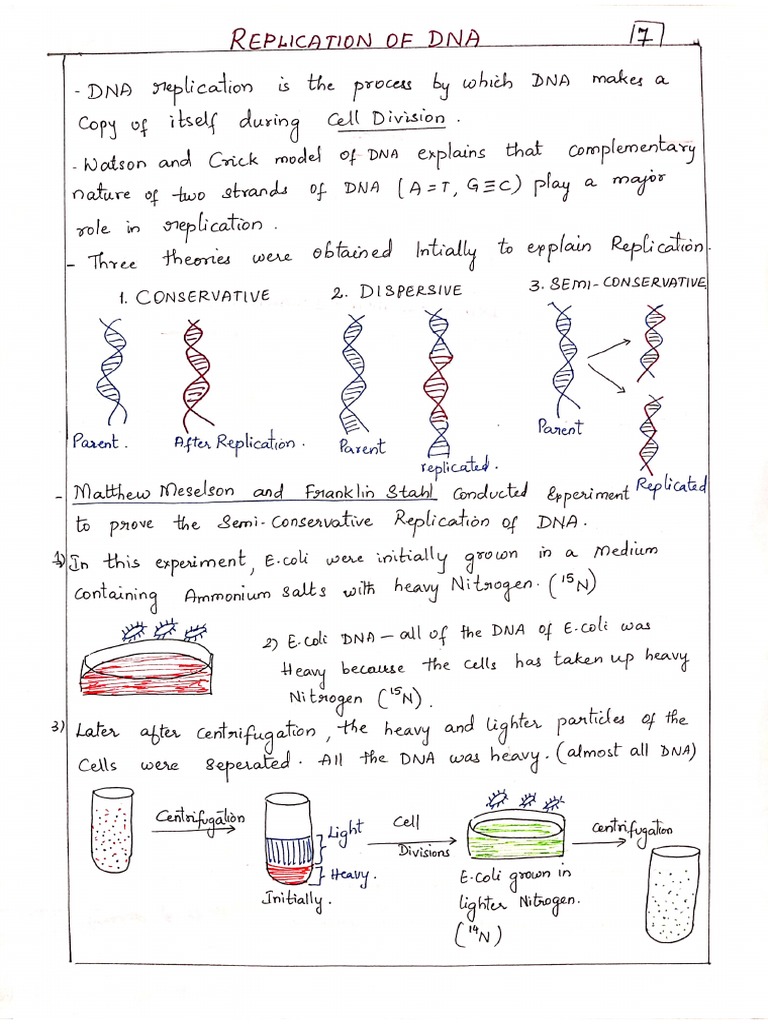 REPLICATION OF DNA
7
- DNA replication is the process by which DNA makes a
Copy of itself during Cell Division.
- Watson and Crick model of DNA explains that complementary
nature of two strands of DNA (A=T, G≡C) play a major
role in replication.
- Three theories were obtained Intially to explain Replication.
1. CONSERVATIVE
2. DISPERSIVE
3. SEMI-CONSERVATIVE
Parent.
After Replication.
Parent
replicated.
Parent
Replicated
- Matthew Meselson and Franklin Stahl conducted Experiment
to prove the Semi-Conservative Replication of DNA.
1) In this experiment, E.coli were initially grown in a Medium
Containing Ammonium salts with heavy Nitrogen. (¹⁵N)
2) E.coli DNA – all of the DNA of E.coli was
Heavy because the cells has taken up heavy
Nitrogen (¹⁵N).
3) Later after centrifugation, the heavy and lighter particles of the
Cells were seperated. All the DNA was heavy. (almost all DNA)
Centrifugation
Light
Heavy.
Initially.
Cell
Divisions
E.coli grown in
lighter Nitrogen.
(¹⁴N)
centrifugation